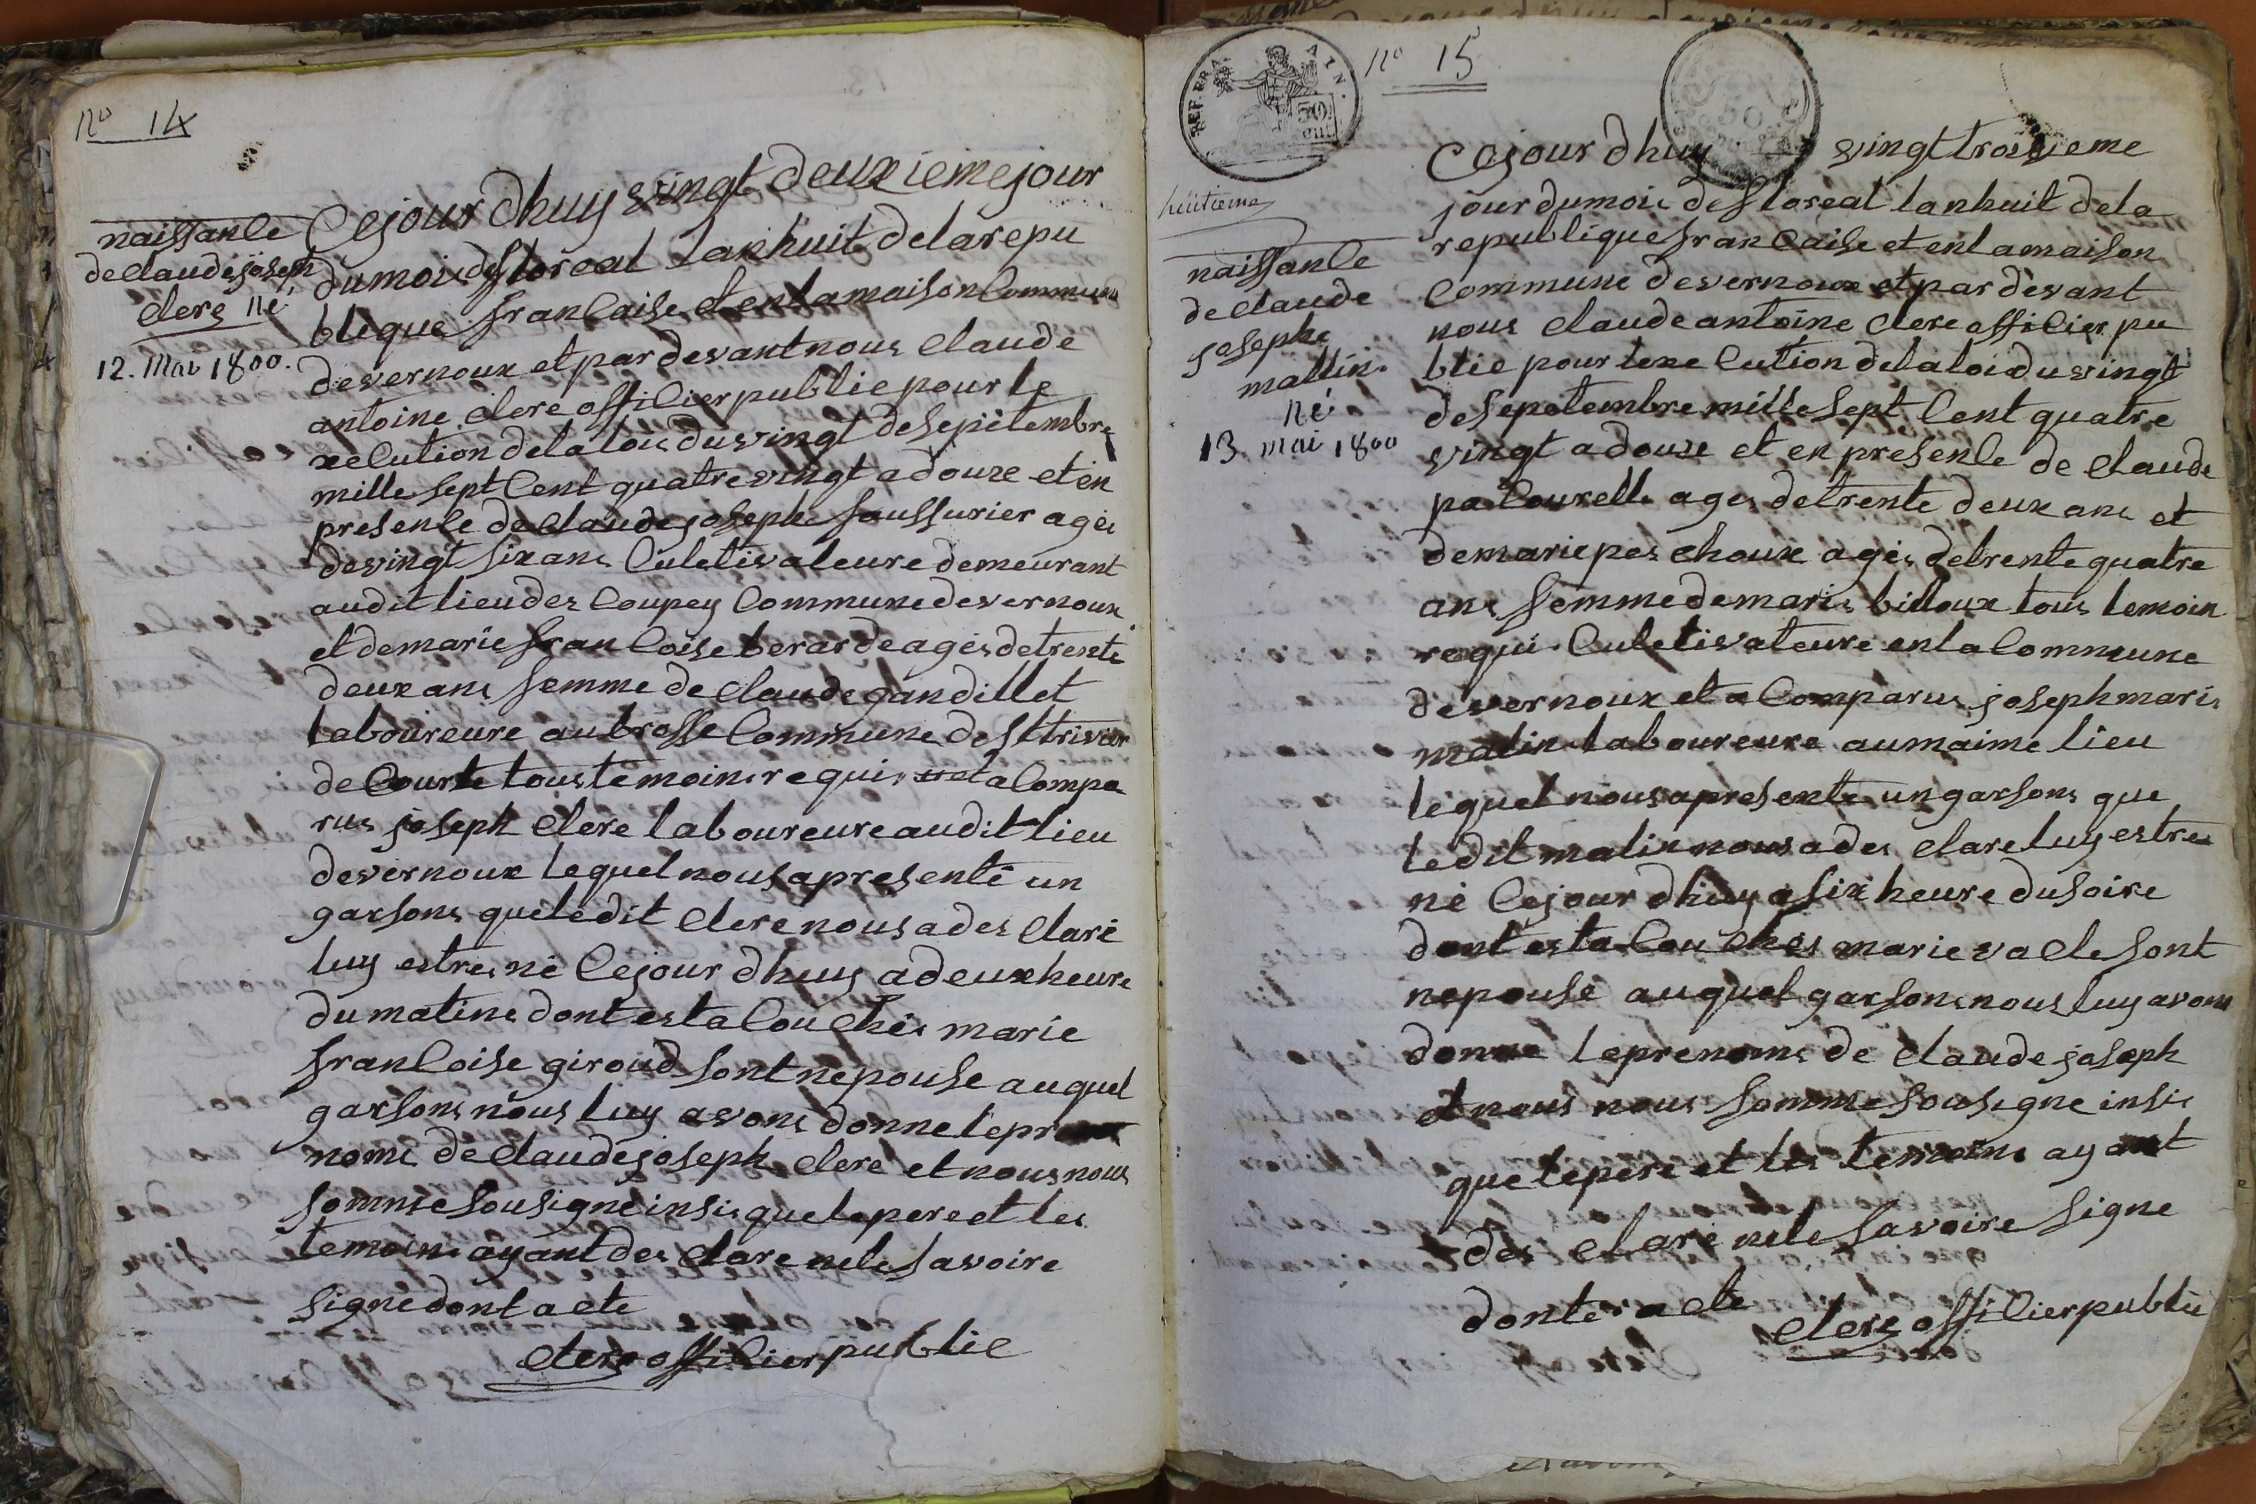 no 14
naissance
de claude joseph
clerc né
12. Mai 1800.
Cejour dhuy vingt deuxieme jour
dumois defloreal lanhuit delarepu
blique francaise et enlamaison Commune
devernoux et par devant nous claude
antoine clerc officier public pour le
xecution delalois duvingt desepetembre
mille sept cent quatre vingt adouze et en
presence de claude joseph saussurier agés
devingt six ans culetivateure demeurant
audit lieu des coupey Commune devernoux
et demarie francoise berarde agés detrente
deux ans femme de claude gandillet
laboureure au brosse Commune de st trivier
de Courte tous temoins requis et a Compa
rus joseph clerc laboureure audit lieu
devernoux lequel nous apresenté un
garsons queledit clerc nous a des claré
luy estres né cejour dhuy adeux heure
dumatins dont est a couchés marie
francoise giroud sont nepouse auquel
garsons nous luy avons donne le pre
noms de claude joseph clerc et nous nous
somme sousigné insis que lepere et les
temoins ayant des clare nele savoire
signe dont acte
clerc officier public
REP. FRA. 
50
cent
no 15
huitieme
naissance
de claude
josephe
mallin.
né
13 mai 1800
Cejour dhuy vingt troisieme
jour dumois de floreal lanhuit dela
republique francaise et enlamaison
Commune devernoux et par devant
nous claude antoine clerc officier pu
blic pour lexe cution delaloi du vingt
desepetembre mille sept cent quatre
vingt adouze et en presence de claude
pacourelle agés detrente deux ans et
demarie pes choux agés detrente quatre
ans femme demaris billoux tous temoin
requi culetivateure enla Commune
devernoux et a Comparus joseph maris
malin laboureure aumaime lieu
lequel nous apresente un garsons que
ledit malin nous a des clare luy estres
né cejour dhuy a six heure dusoire
dont est a couchés marie vacle sont
nepouse auquel garsons nous luy avons
donne leprenoms de claude joseph
et nous nous somme sousigne insis
que lepere et les temoins ayant
des claré nele savoire signe
donter acte
clerc officier public